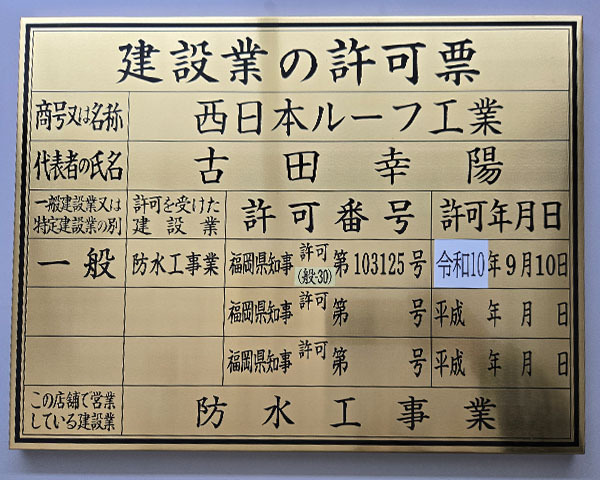 建設業の許可票
商号又は名称 西日本ルーフ工業
代表者の氏名 古田幸陽
一般建設業又は特定建設業の別 許可を受けた建設業 許可番号 許可年月日
一般 防水工事業 福岡県知事 許可(般-30) 第103125号 令和10年9月10日
福岡県知事 許可 第 号 平成 年 月 日
福岡県知事 許可 第 号 平成 年 月 日
この店舗で営業している建設業 防水工事業